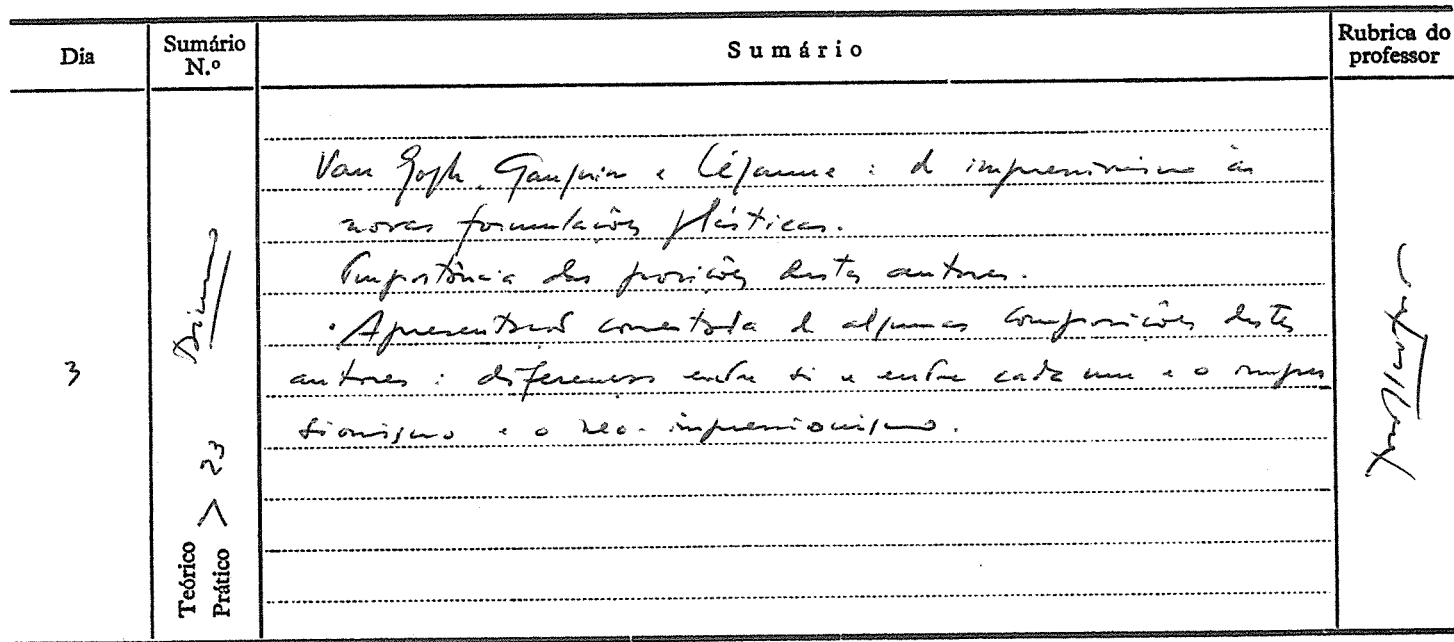 Dia
Sumário N.º
Sumário
Rubrica do professor
Van Gogh, Gauguin e Cézanne : do impressionismo às
novas formulações plásticas.
Importância das posições destes autores.
. Apresentação comentada de algumas composições destes
autores : diferenças entre si e entre cada um e o impres
sionismo e o neo-impressionismo.
3
Teórico
Prático > 23